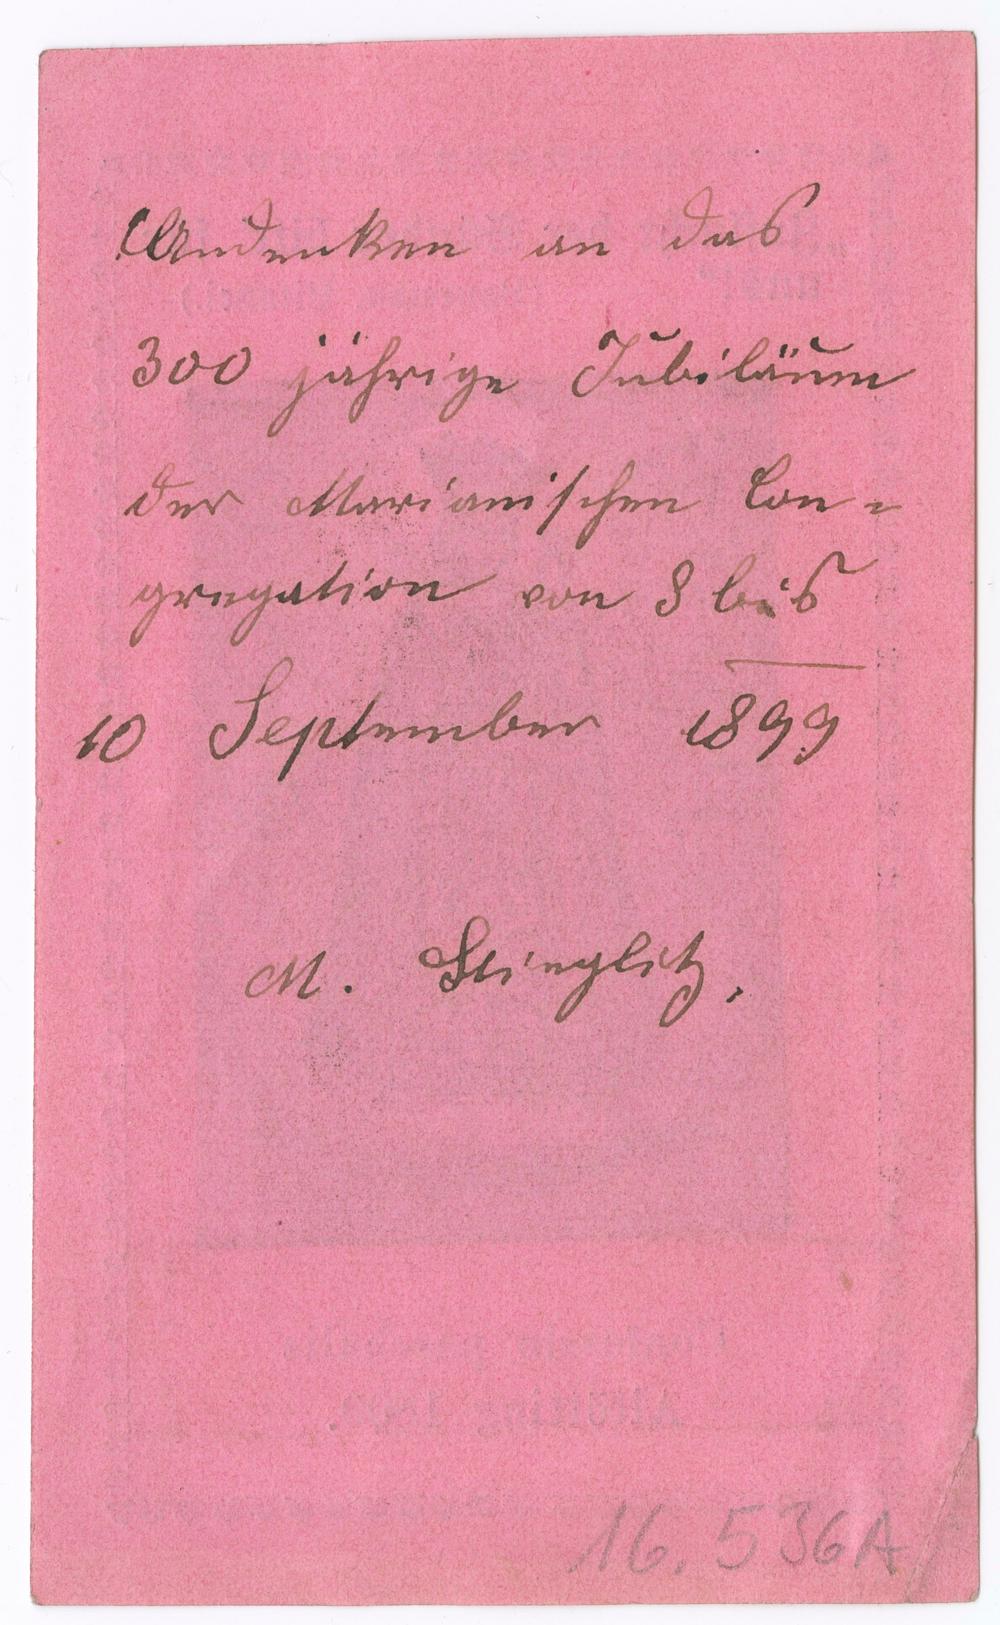 Andenken an das
300 jährige Jubiläum
der Marianischen Con=
gregation von 8 bis
10 September 1899
M. Stieglitz.
16.536A